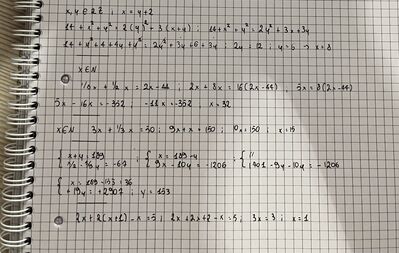 x, y ∈ 2ℤ ; x = y+2
14 + x² + y² = 2(y)² + 3(x+y) ; 14 + x² + y² = 2y² + 3x + 3y
14 + y² + 4 + 4y + y² = 2y² + 3y + 6 + 3y ; 2y = 12 ; y = 6 → x = 8
x ∈ ℕ
1/8 x + 1/2 x = 2x - 44 ; 2x + 8x = 16(2x-44) ; 5x = 8(2x-44)
5x - 16x = -352 ; -11x = -352 ; x = 32
x ∈ ℕ 3x + 1/3 x = 50 ; 9x + x = 150 ; 10x = 150 ; x = 15
{ x + y = 189 ; { x = 189 - y ; { //
9x - 10y = -1206 1701 - 9y - 10y = -1206
{ x = 189 - 153 = 36
+19y = +2907 ; y = 153
2x + 2(x+1) - x = 5 ; 2x + 2x + 2 - x = 5 ; 3x = 3 ; x = 1